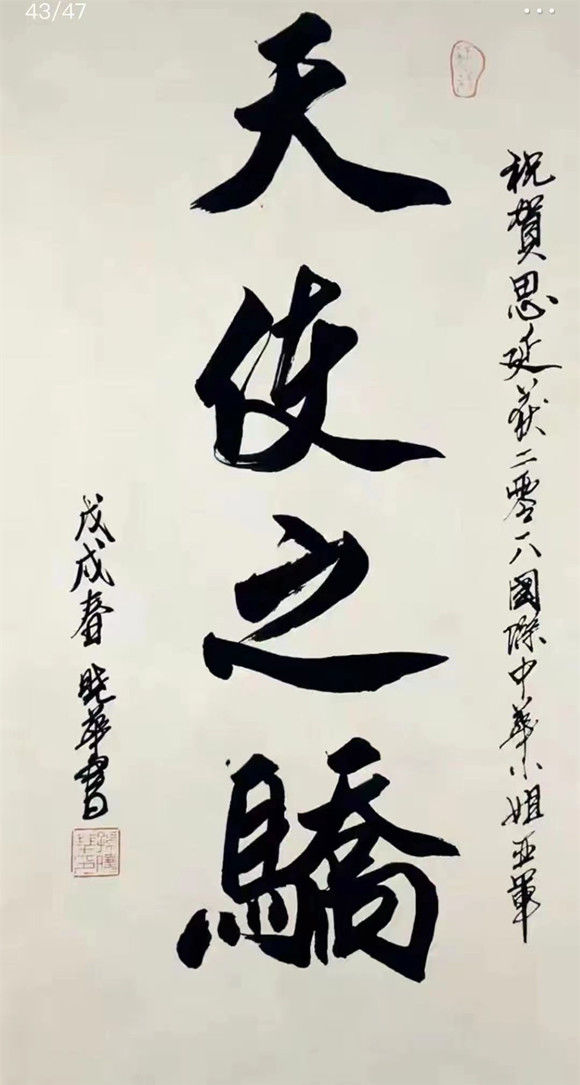 43/47
祝賀思延获二零一八國際中華小姐亚軍
天使之驕
戊戌春 晓華書